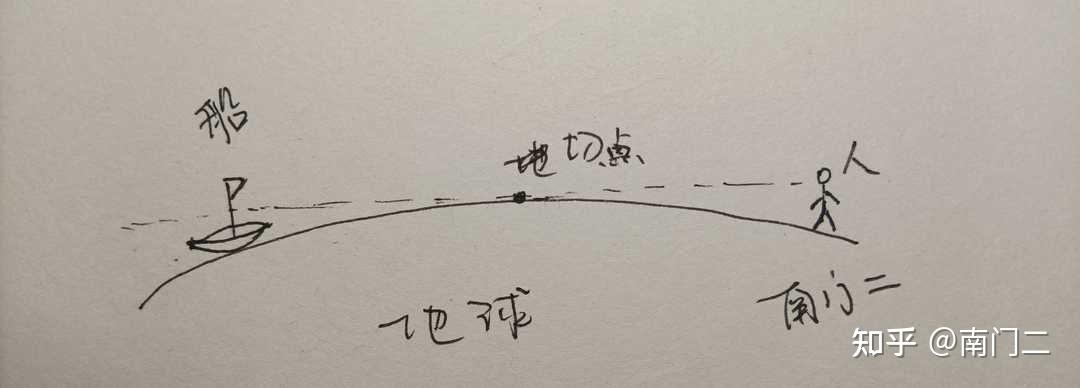 船
地切点
人
地球
南门二
知乎 @南门二